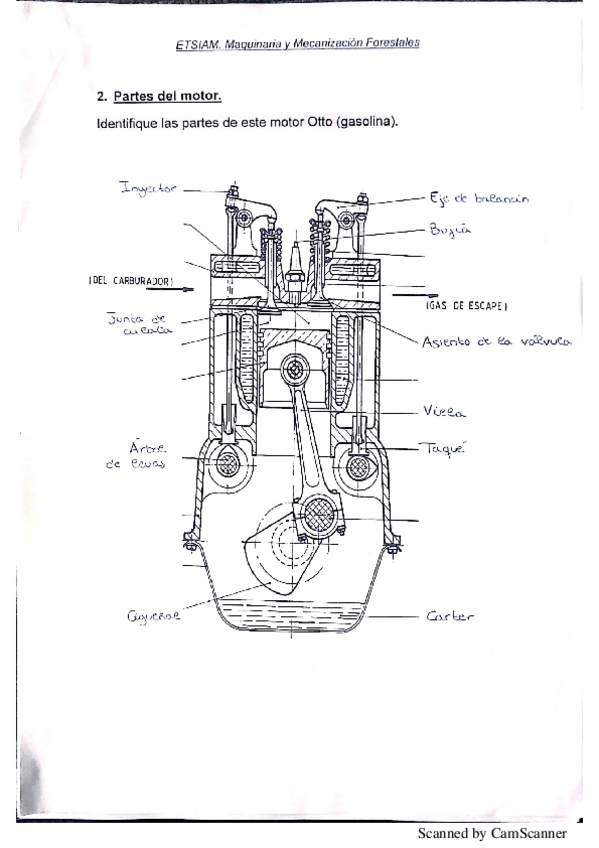 ETSIAM. Maquinaria y Mecanización Forestales
2. Partes del motor.
Identifique las partes de este motor Otto (gasolina).
Inyector
Eje de balancín
Bujía
(DEL CARBURADOR)
(GAS DE ESCAPE)
Junta de
culata
Asiento de la válvula
Viela
Árbol
de levas
Taqué
Cigüeñal
Carter
Scanned by CamScanner